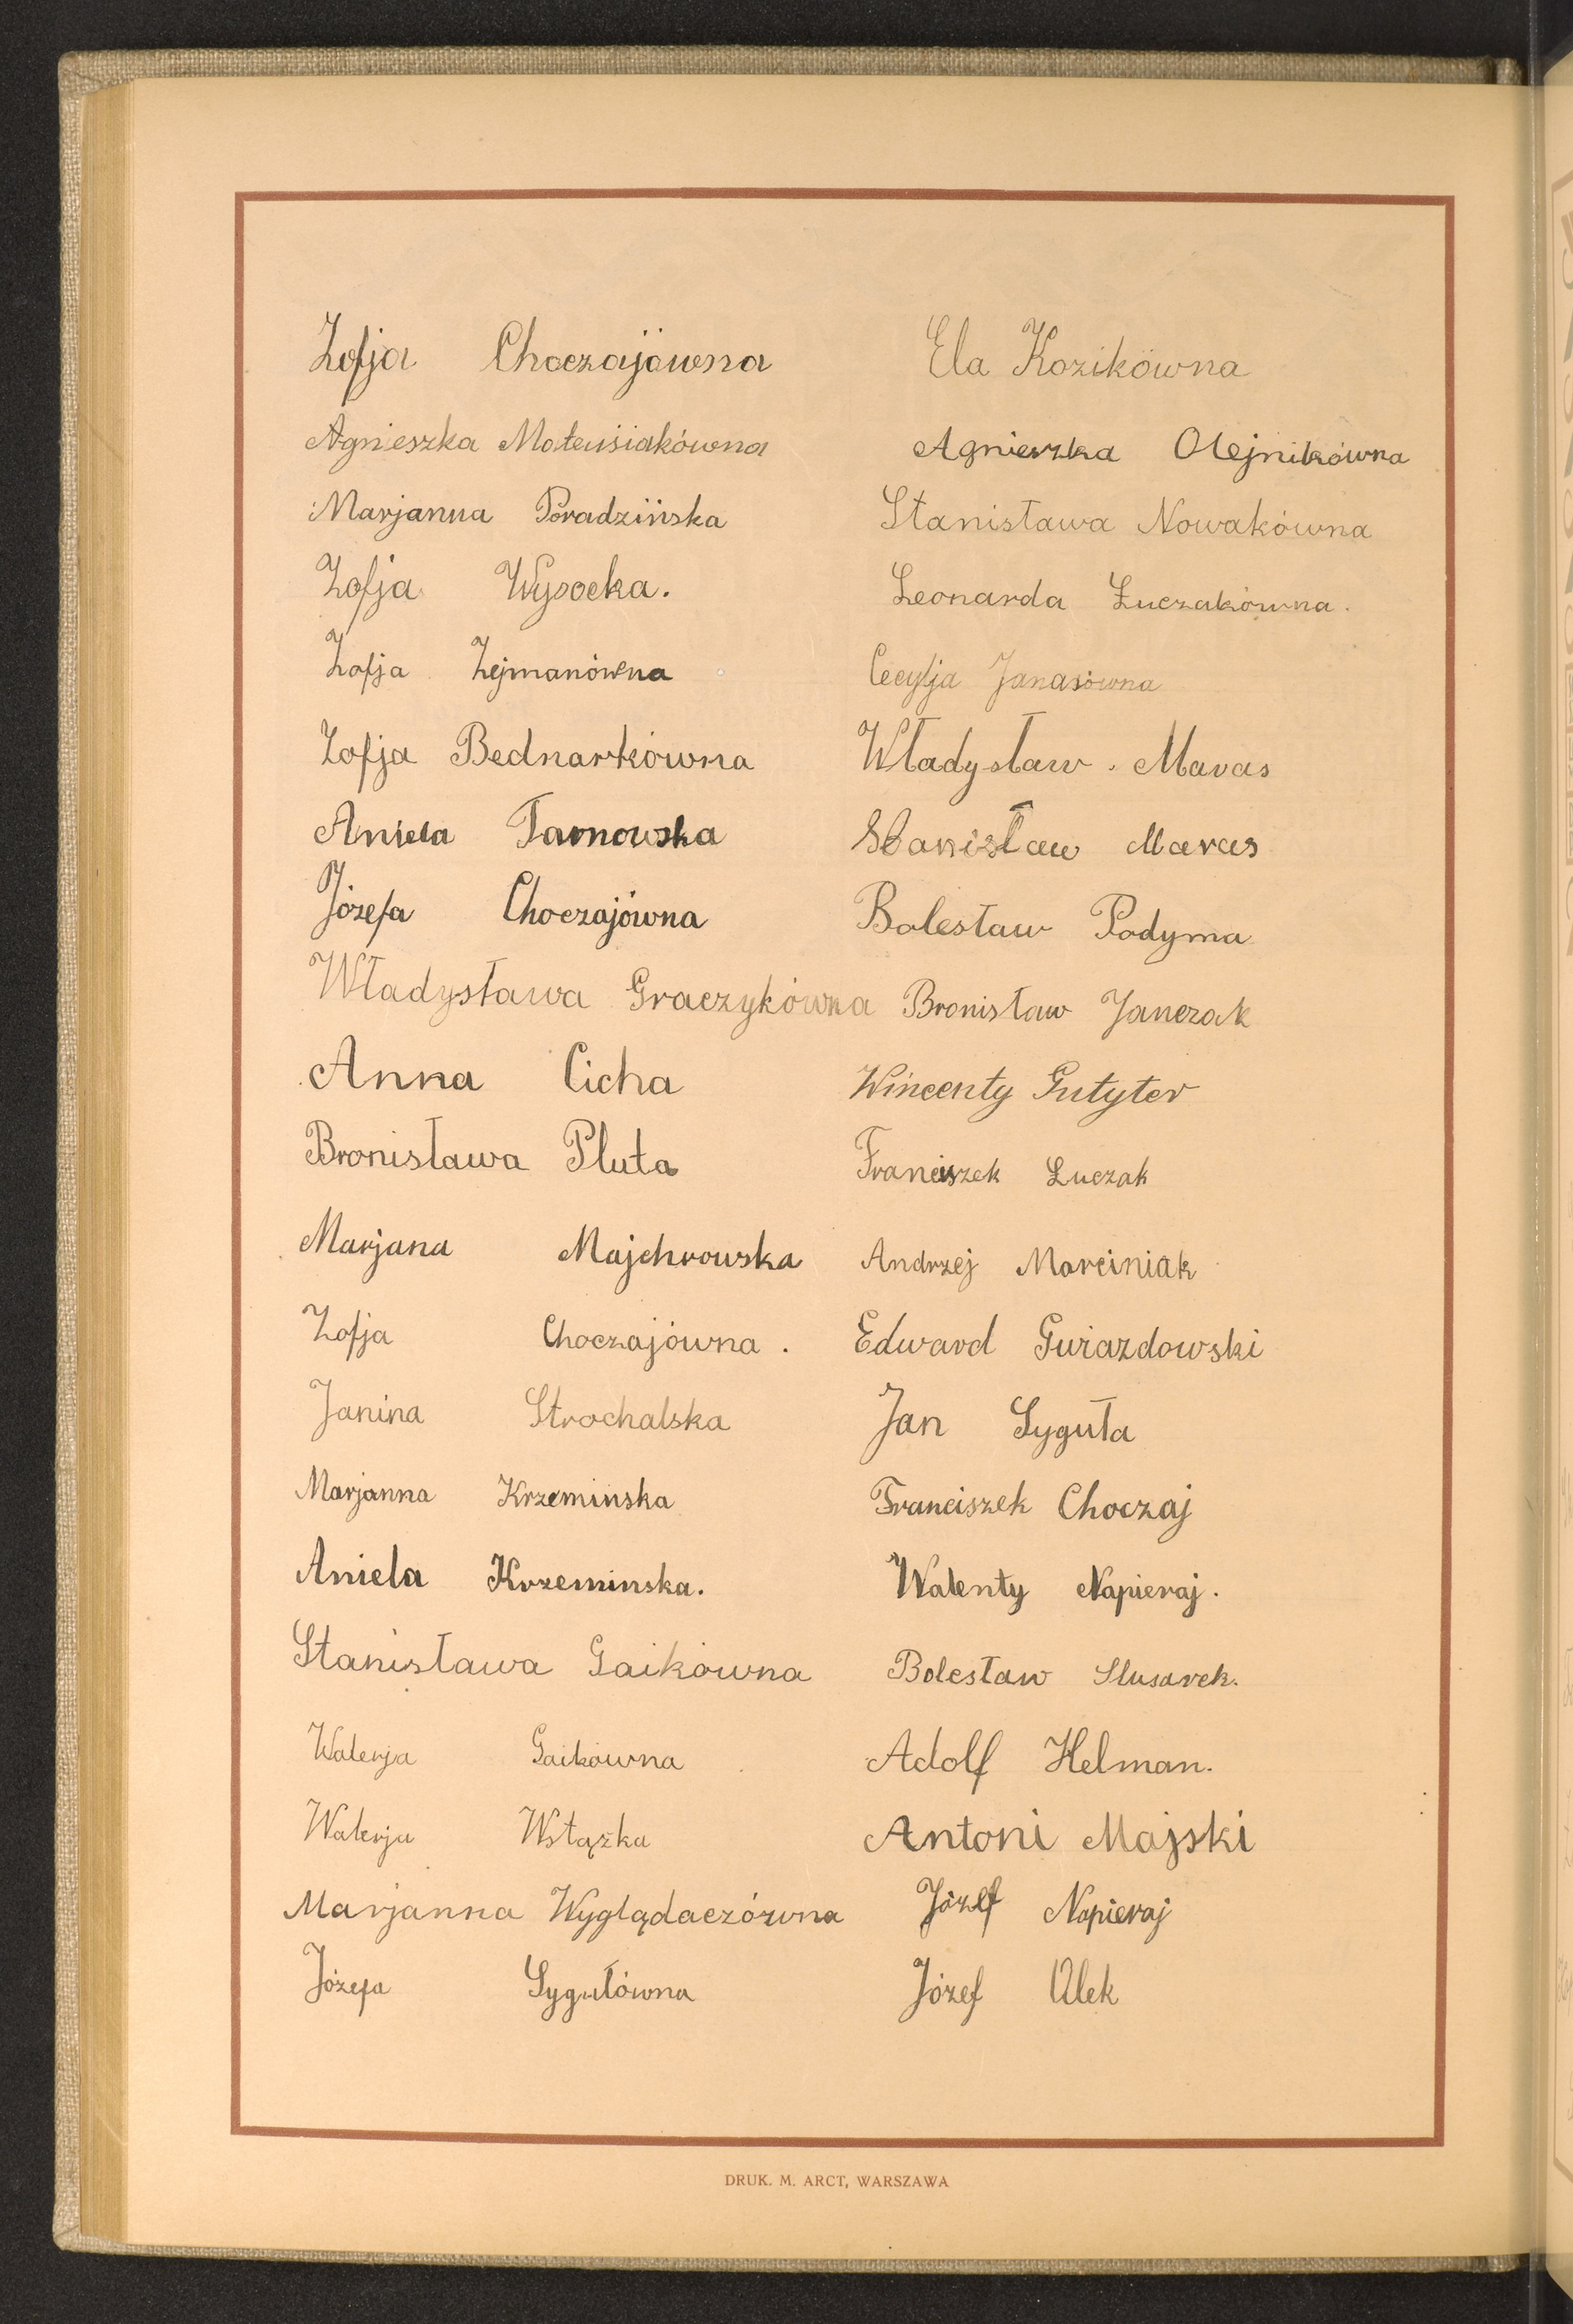 Zofja Choczajówna
Agnieszka Mateusiakówna
Marjanna Poradzińska
Zofja Wysocka.
Zofja Zejmanówna
Zofja Bednarkówna
Aniela Tarnowska
Józefa Choczajówna
Władysława Graczykówna
Anna Cicha
Bronisława Pluta
Marjana Majchrowska
Zofja Choczajówna.
Janina Strochalska
Marjanna Krzemińska
Aniela Krzeminska.
Stanisława Gaikówna
Walerja Gaikówna
Walerja Wstążka
Marjanna Wyglądaczówna
Józefa Sygułówna
Ela Kozikówna
Agnieszka Olejnikówna
Stanisława Nowakówna
Leonarda Łuczakówna.
Cecylja Janasówna
Władysław Maras
Stanisław Maras
Bolesław Podyma
Bronisław Janczak
Wincenty Gutyter
Franciszek Łuczak
Andrzej Marciniak
Edward Gwiazdowski
Jan Syguła
Franciszek Choczaj
Walenty Napieraj.
Bolesław Slusarek.
Adolf Helman.
Antoni Majski
Józef Napieraj
Józef Olek
DRUK. M. ARCT, WARSZAWA